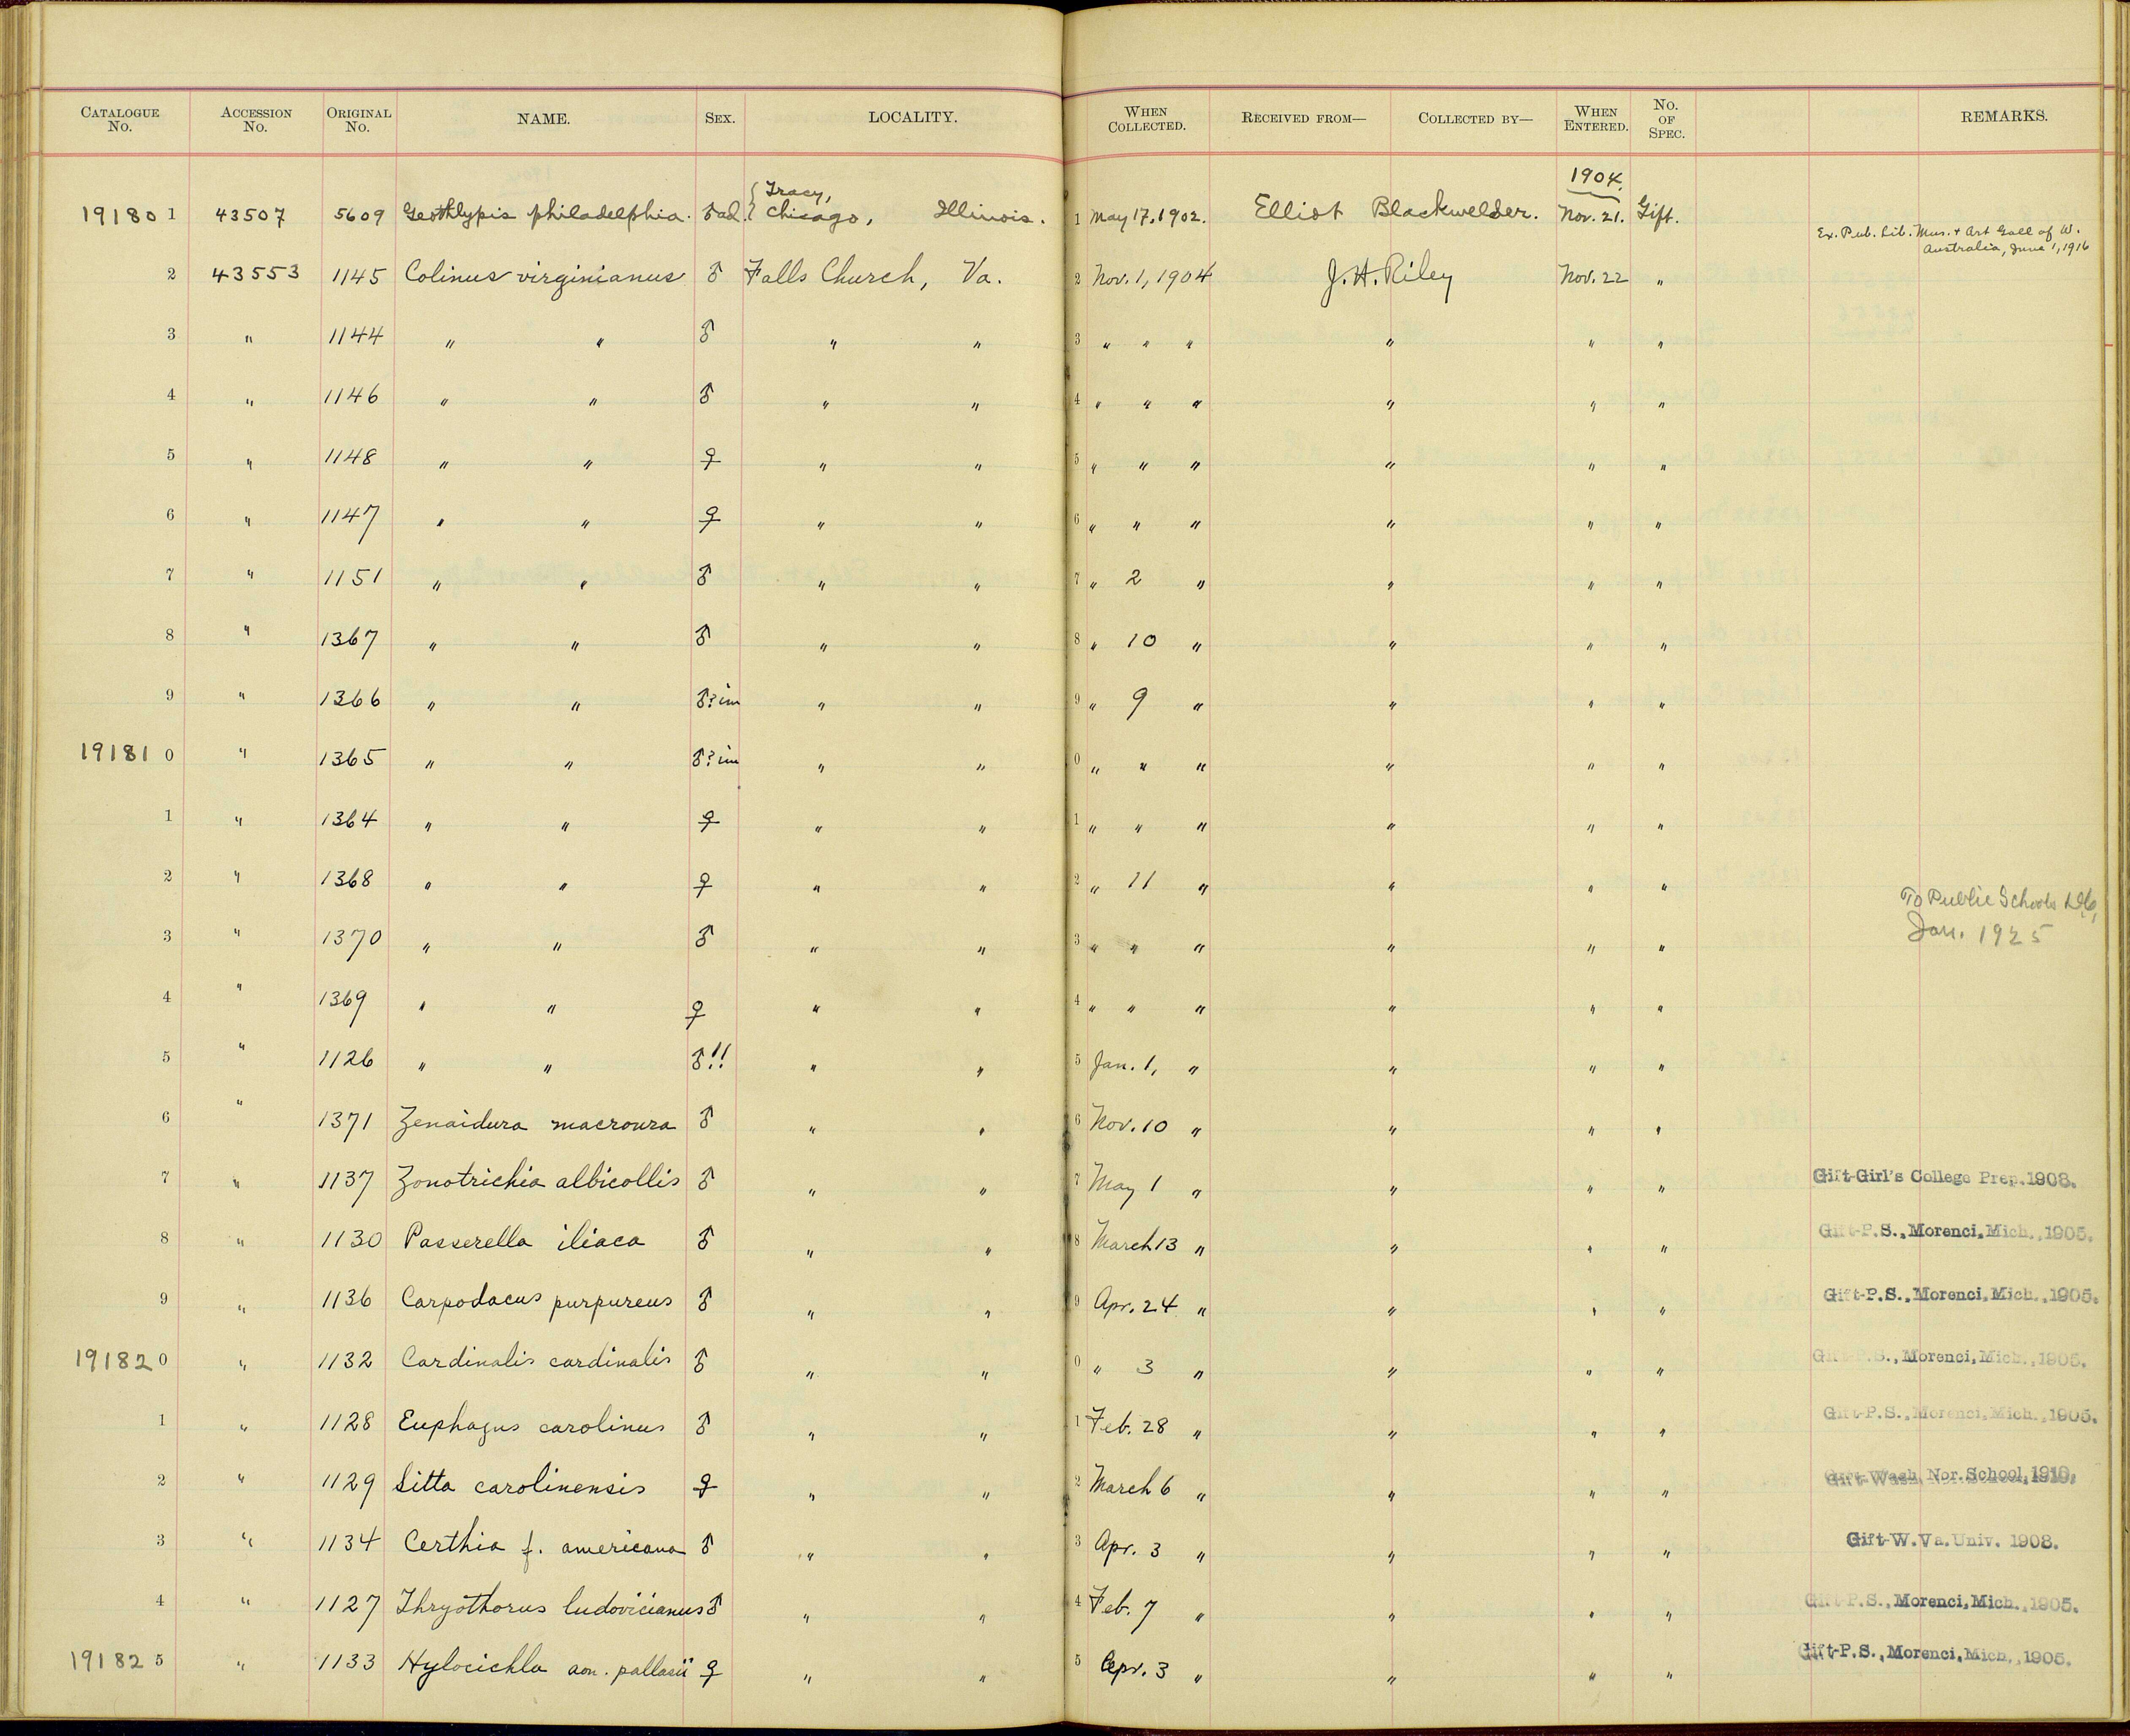 CATALOGUE No. ACCESSION No. ORIGINAL No. NAME. SEX. LOCALITY. WHEN COLLECTED. RECEIVED FROM— COLLECTED BY— WHEN ENTERED. No. OF SPEC. REMARKS.
1904.
19180 1 43507 5609 Geothlypis philadelphia. ♂ad. { Tracy, Chicago, Illinois. 1 May 17, 1902. Elliot Blackwelder. Nov. 21. Gift. Ex. Pub. Lib. Mus. + Art Gall of W.
Australia, June 1, 1916
2 43553 1145 Colinus virginianus ♂ Falls Church, Va. 2 Nov. 1, 1904 J. H. Riley Nov. 22 "
3 " 1144 " " ♂ " " 3 " " " " " "
4 " 1146 " " ♂ " " 4 " " " " " "
5 " 1148 " " ♀ " " 5 " " " " " "
6 " 1147 " " ♀ " " 6 " " " " " "
7 " 1151 " " ♂ " " 7 " 2 " " " "
8 " 1367 " " ♂ " " 8 " 10 " " " "
9 " 1366 " " ♂? im " " 9 " 9 " " " "
19181 0 " 1365 " " ♂? im " " 0 " " " " " "
1 " 1364 " " ♀ " " 1 " " " " " "
2 " 1368 " " ♀ " " 2 " 11 " " " " To Public Schools
3 " 1370 " " ♂ " " 3 " " " " " " Jan. 1925
4 " 1369 " " ♀ " " 4 " " " " " "
5 " 1126 " " ♂!! " " 5 Jan. 1, " " " "
6 " 1371 Zenaidura macroura ♂ " " 6 Nov. 10 " " " "
7 " 1137 Zonotrichia albicollis ♂ " " 7 May 1 " " " " Gift-Girl's College Prep. 1908.
8 " 1130 Passerella iliaca ♂ " " 8 March 13 " " " " Gift-P.S., Morenci, Mich., 1905.
9 " 1136 Carpodacus purpureus ♂ " " 9 Apr. 24 " " " " Gift-P.S., Morenci, Mich., 1905.
19182 0 " 1132 Cardinalis cardinalis ♂ " " 0 " 3 " " " " Gift-P.S., Morenci, Mich., 1905.
1 " 1128 Euphagus carolinus ♂ " " 1 Feb. 28 " " " " Gift-P.S., Morenci, Mich., 1905.
2 " 1129 Sitta carolinensis ♀ " " 2 March 6 " " " " Gift-Wash. Nor. School, 1910.
3 " 1134 Certhia f. americana ♂ " " 3 Apr. 3 " " " " Gift-W. Va. Univ. 1908.
4 " 1127 Thryothorus ludovicianus ♂ " " 4 Feb. 7 " " " " Gift-P.S., Morenci, Mich., 1905.
19182 5 " 1133 Hylocichla aon. pallasii ♀ " " 5 Apr. 3 " " " " Gift-P.S., Morenci, Mich., 1905.